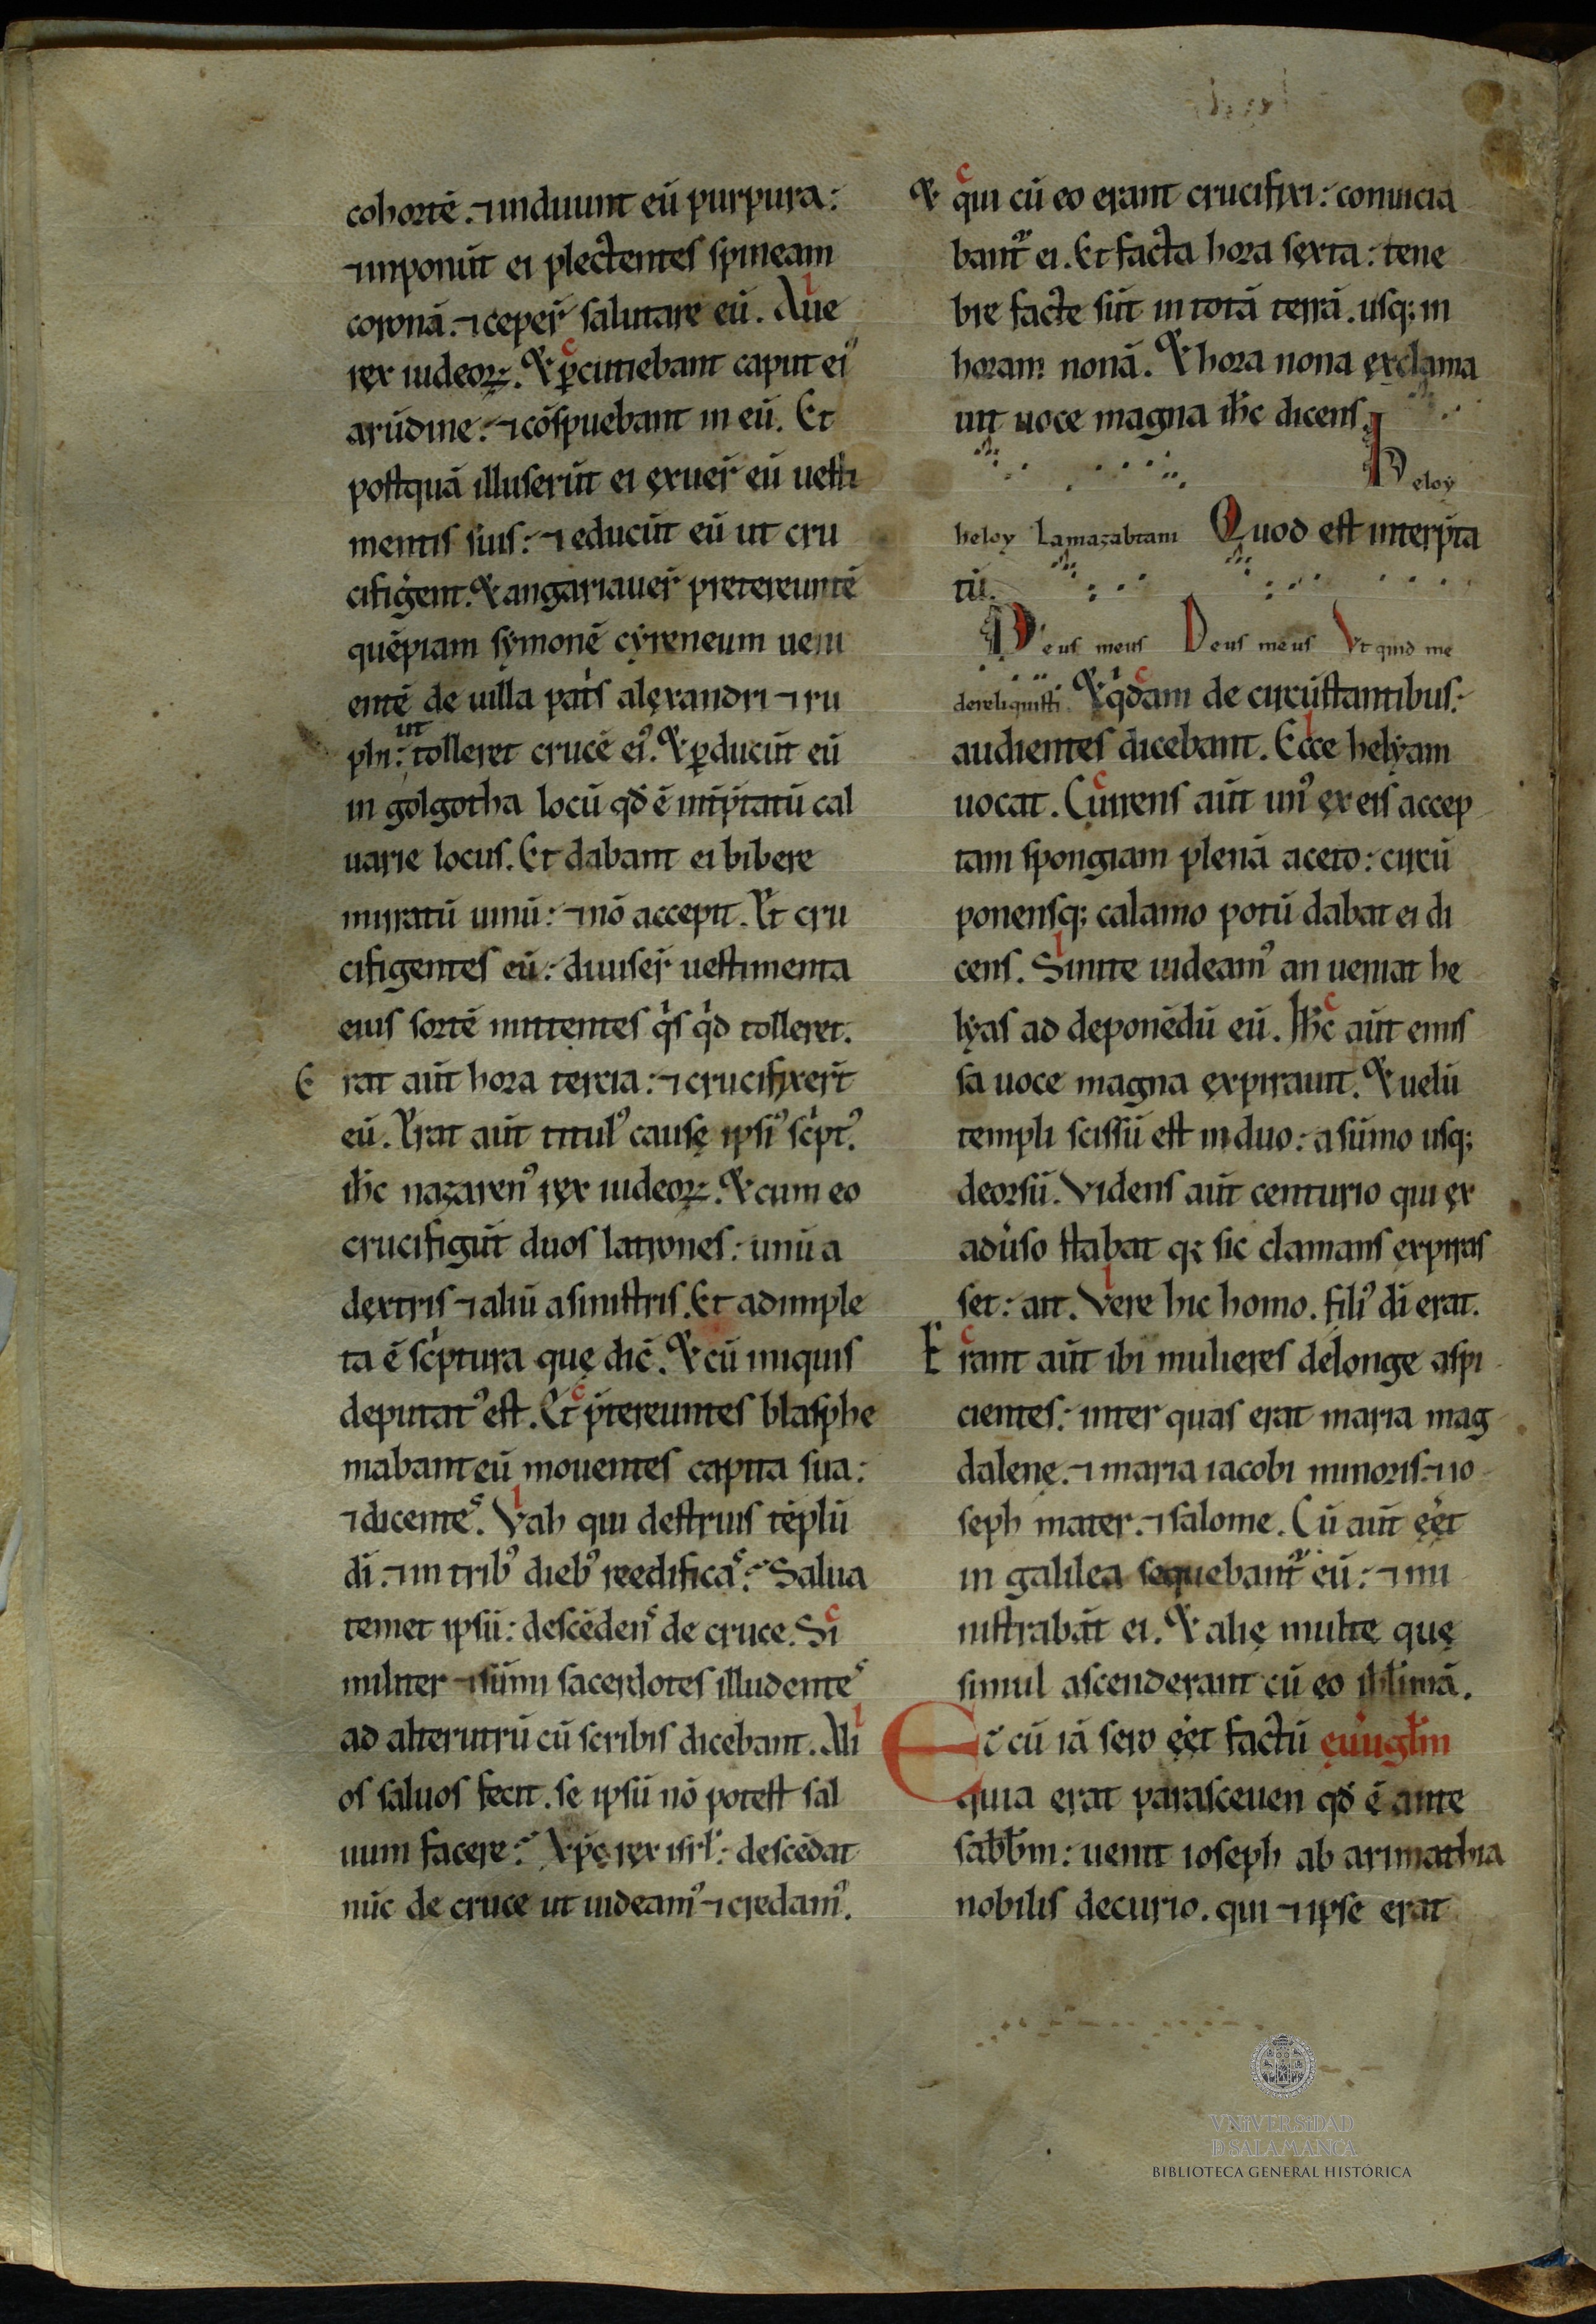 cohortē. ⁊ induunt eū purpura:
⁊ inponūt ei plectentes spineam
coronā. ⁊ ceper̄ salutare eū. Aue
rex iudeoꝝ. & ꝑcutiebant caput ei᾽
arūdine: ⁊ cōspuebant in eū. Et
postquā illuserūt ei exuer̄ eū uesti
mentis suis: ⁊ educūt eū ut cru
cifigerent. & angariauer̄ pretereuntē
quēpiam symonē cyreneum ueni
entē de uilla patͥs alexandri ⁊ ru
phi: ut tolleret crucē ei᾽. & ꝑducūt eū
in golgotha locū qđ ē int̄p̄tatū cal
uarie locus. Et dabant ei bibere
mirratū uinū: ⁊ nō accepit. Et cru
cifigentes eū: diuiser̄ uestimenta
eius sortē mittentes qͥs qͥd tolleret.
E rat aūt hora tercia: ⁊ crucifixer̄t
eū. Erat aūt titul᾽ cause ipsi᾽ scͥpt᾽.
ih̄c nazaren᾽ rex iudeoꝝ. & cum eo
crucifigūt duos latrones: unū a
dextris ⁊ aliū a sinistris. Et adimple
ta ē scͥptura que dic̄. & cū iniquis
deputat᾽ est. Et p̄tereuntes blasphe
mabant eū mouentes capita sua:
⁊ dicentes. Vah qui destruis tēplū
dī. ⁊ in trib᾽ dieb᾽ reedificas: Salua
temet ipsū: descēdens de cruce. Si
militer ⁊ sūmi sacerdotes illudentes
ad alterutrū cū scribis dicebant. Ali
os saluos fecit. se ipsū nō potest sal
uum facere: Xp̄c rex isrl̄: descēdat
nūc de cruce ut uideam᾽ ⁊ credam᾽.
& qui cū eo erant crucifixi: conuicia
bant᷑ ei. Et facta hora sexta: tene
bre facte sūt in totā terrā. usq; in
horam nonā. & hora nona exclama
uit uoce magna ih̄c dicens.
heloy
heloy Lamazabtani Quod est interp̄ta
tū.
Deus meus Deus meus Vt quid me
dereliquisti. & qͥdam de circūstantibus:
audientes dicebant. Ecce helyam
uocat. Currens aūt un᾽ ex eis accep
tam spongiam plenā aceto: circū
ponensq; calamo potū dabat ei di
cens. Sinite uideam᾽ an ueniat he
lyas ad deponēdū eū. Ih̄c aūt emis
sa uoce magna expirauit. & uelū
templi scissū est in duo: a sūmo usq;
deorsū. Videns aūt centurio qui ex
adūso stabat q; sic clamans expiras
set: ait. Vere hic homo. fili᾽ dī erat.
E rant aūt ibi mulieres delonge aspi
cientes: inter quas erat maria mag
dalene. ⁊ maria iacobi minoris: ⁊ io
seph mater. ⁊ salome. Cū aūt eēt
in galilea sequebant᷑ eū: ⁊ mi
nistrabāt ei. & alie multe que
simul ascenderant cū eo ih̄rl̄imā.
Et cū iā sero eēt factū euūgl̄m
quia erat parasceuen qđ ē ante
sabb̄m: uenit ioseph ab arimathia
nobilis decurio. qui ⁊ ipse erat
VNiVERSiDAD
D SALAMANCA
BIBLIOTECA GENERAL HISTÓRICA